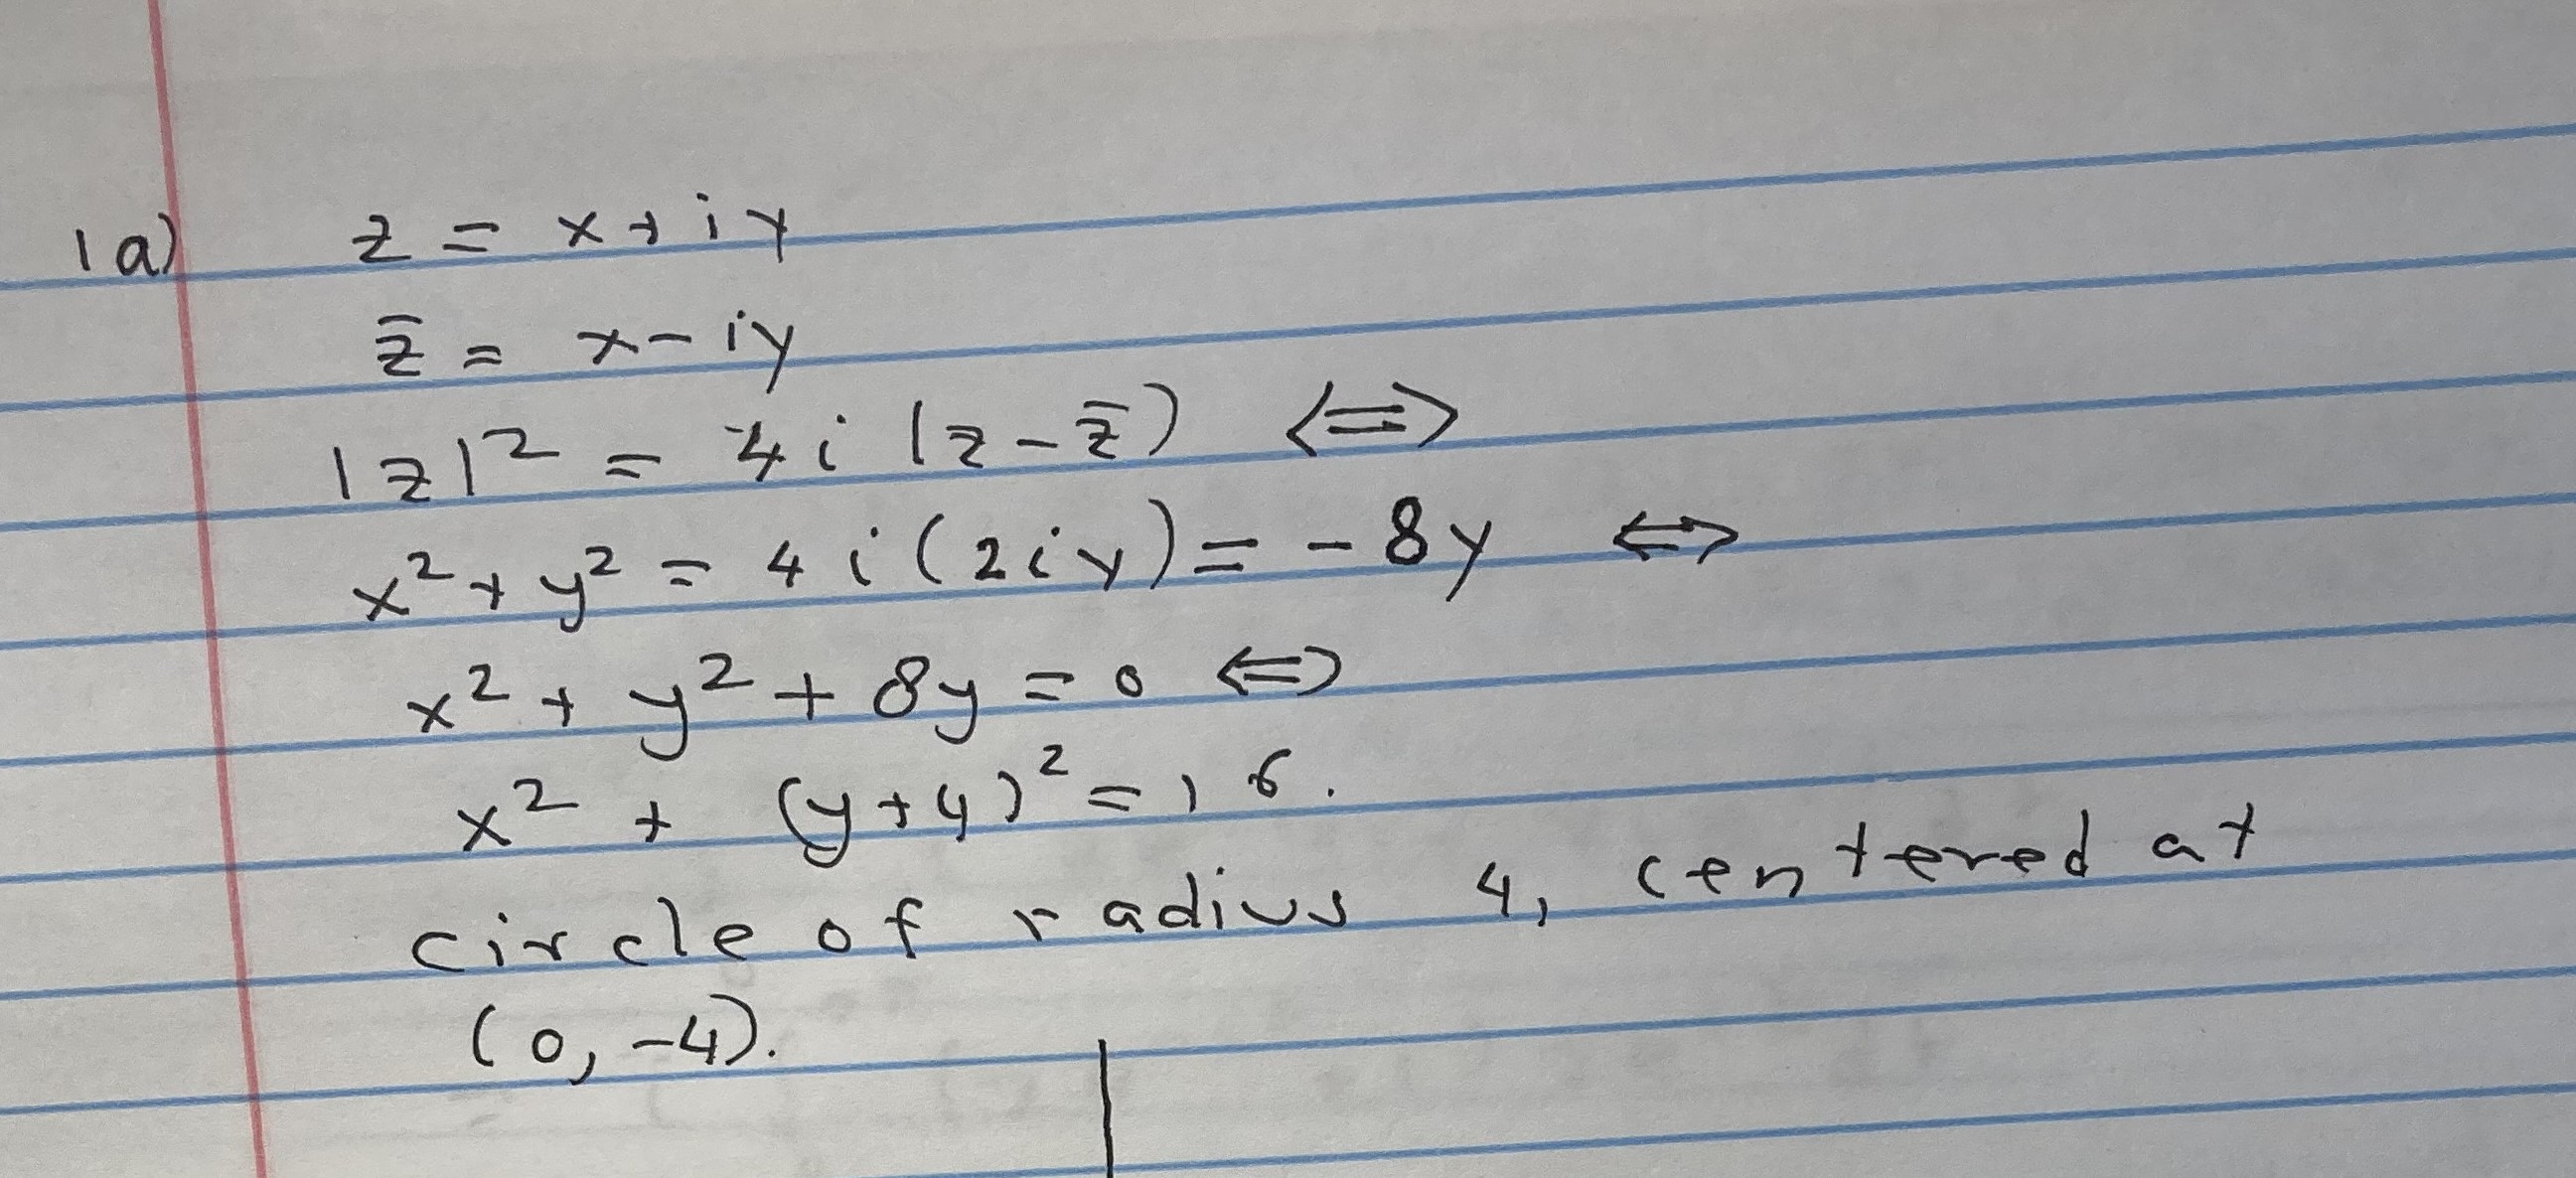 1a) z = x + iy
z̄ = x - iy
|z|² = 4i(z - z̄) <=>
x² + y² = 4i(2iy) = -8y <=>
x² + y² + 8y = 0 <=>
x² + (y+4)² = 16.
circle of radius 4, centered at
(0, -4).